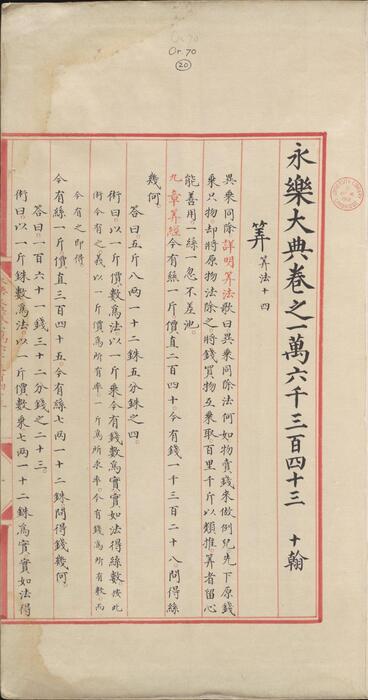 Or. 70
Or. 70
20
永樂大典卷之一萬六千三百四十三 十翰
筭 筭法十四
異乘同除詳明筭法歌曰異乘同除法何如物賣錢來做例兒先下原錢
乘只物却將原物法除之將錢買物互乘取百里千斤以類推筭者留心
能善用一絲一忽不差池
九章筭經今有絲一斤價直二百四十今有錢一千三百二十八問得絲
幾何
荅曰五斤八兩一十二銖五分銖之四
術曰以一斤價數爲法以一斤乘今有錢數爲實實如法得絲數按此
術今有之義以一斤價爲所有率一斤爲所求率今有錢爲所有數而
今有之即得
今有絲一斤價直三百四十五今有絲七兩一十二銖問得錢幾何
荅曰一百六十一錢三十二分錢之二十三
術曰以一斤銖數爲法以一斤價數乘七兩一十二銖爲實實如法得